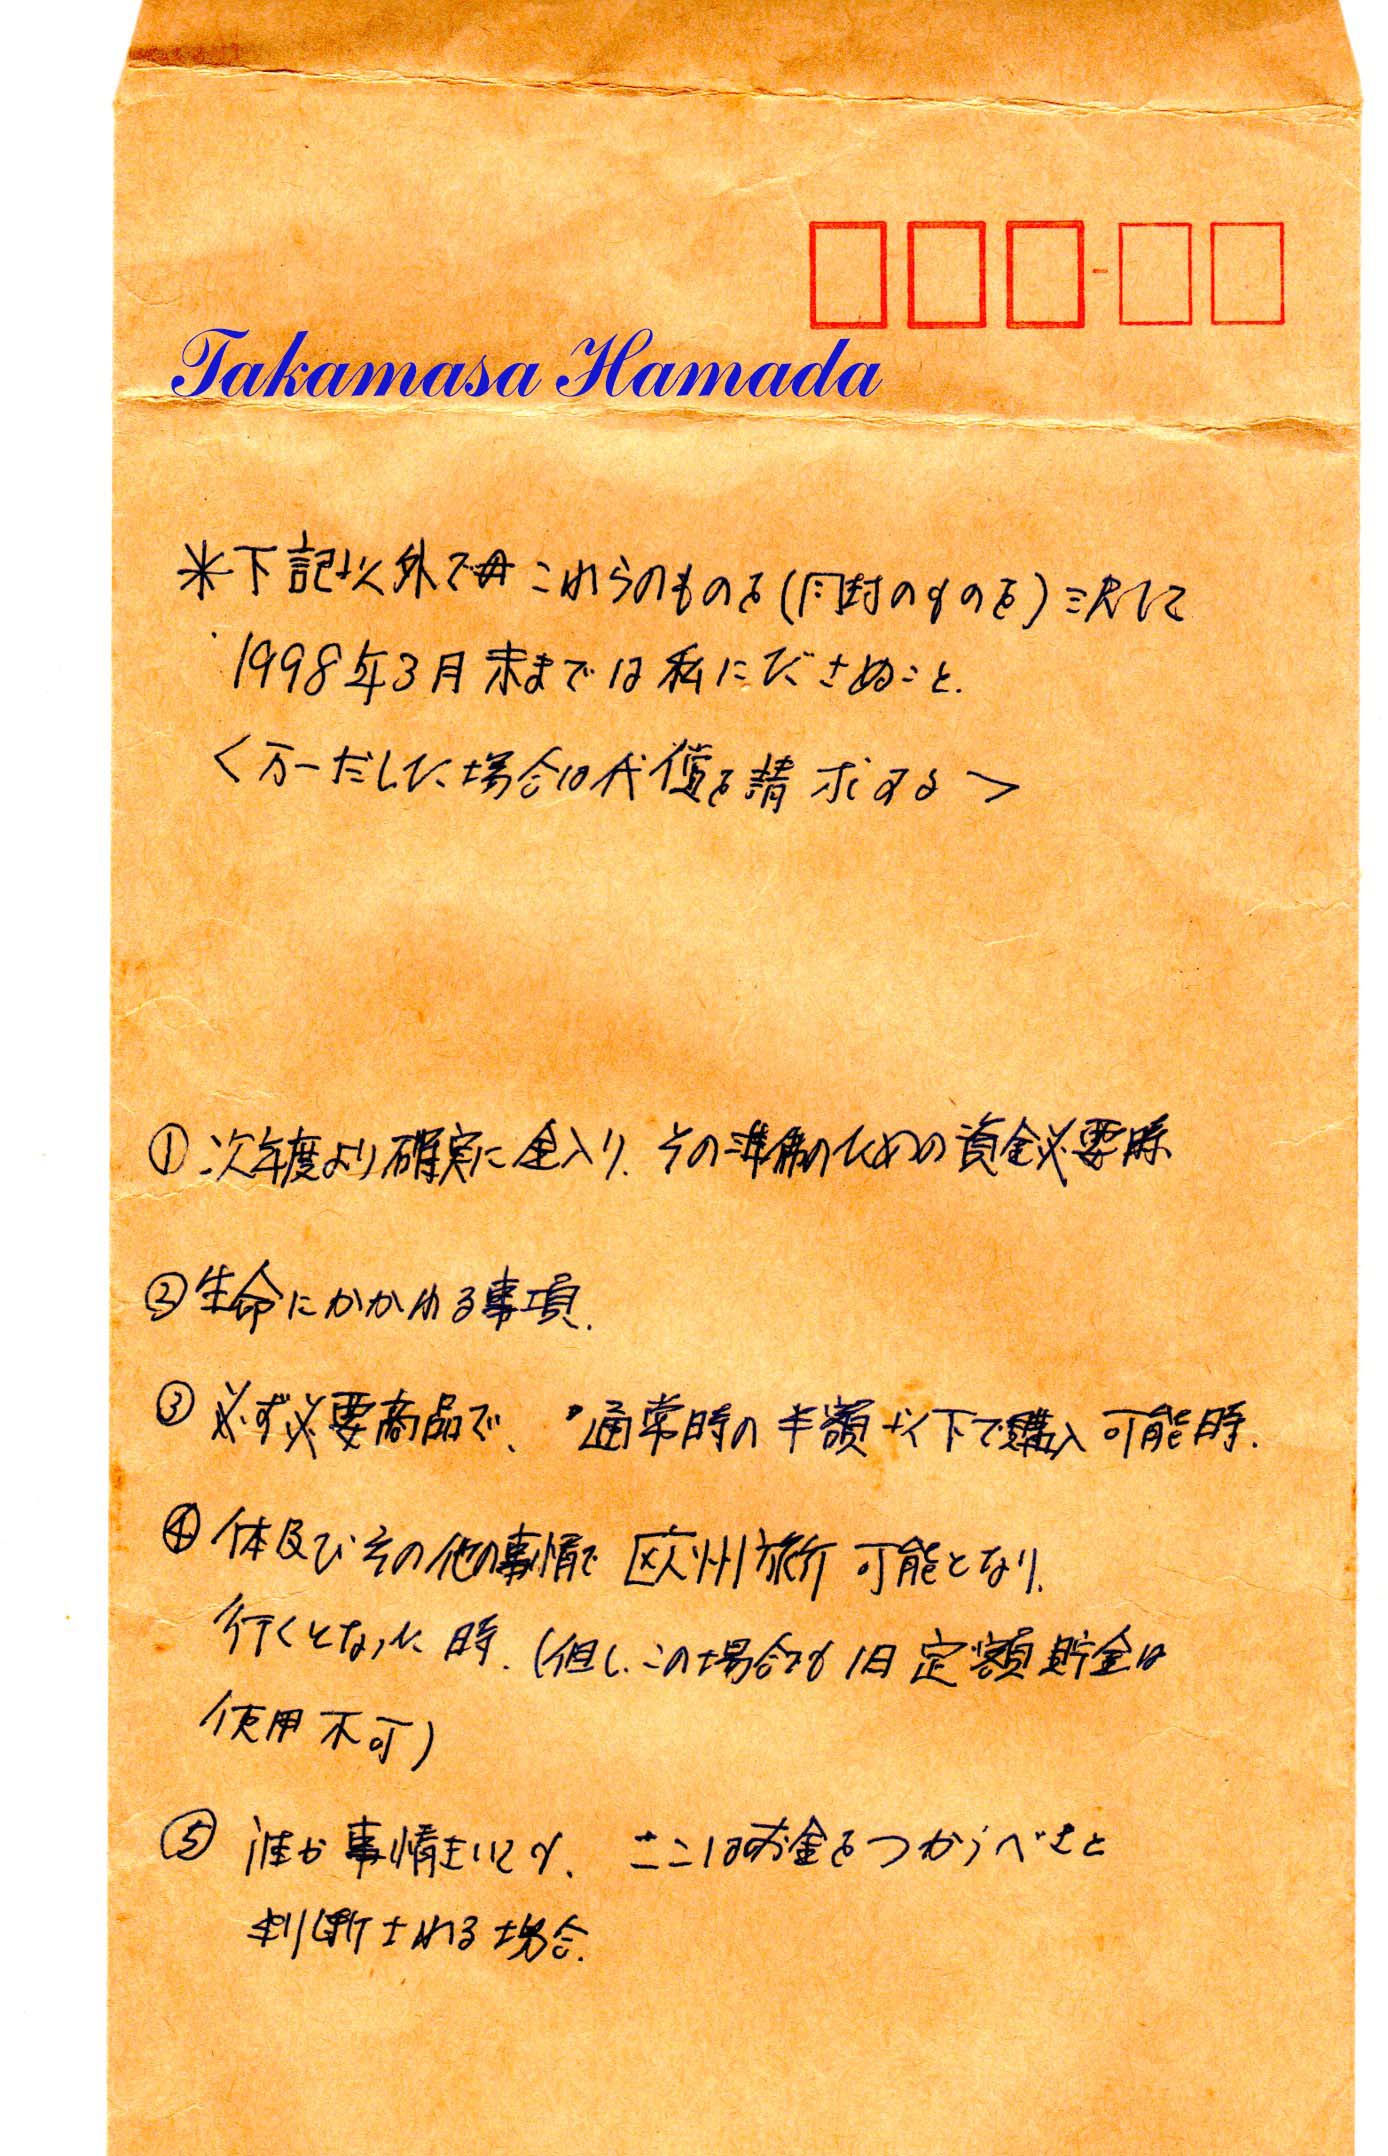 Takamasa Hamada
※下記以外で毋これらのものを(同封のものを)決して
1998年3月末までは私にださぬこと.
<万一だした場合は代償を請求する>
①次年度より確実に金入り、その準備のための資金必要時
②生命にかかわる事項.
③必ず必要商品で、通常時の半額以下で購入可能時.
④体及びその他の事情で欧州旅行可能となり、
行くとなった時.(但し、この場合でも旧定額貯金は
使用不可)
⑤誰が事情をいても、ここはお金をつかうべきと
判断される場合.